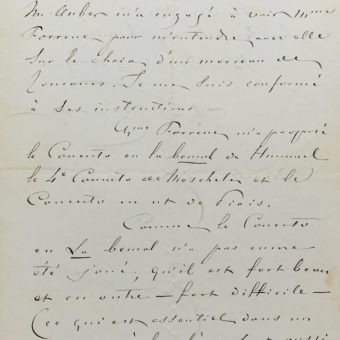 Mr Auber m'a engagé à voir Mme
Farrenc pour m'entendre avec elle
sur le choix d'un morceau de
Concours. Je me suis conformé
à ses instructions
Mme Farrenc m'a proposé
le Concerto en la bemol de Hummel
le 4e Concerto de Moscheles et le
Concerto en ut de
Comme le Concerto
en La bemol n'a pas encore
été joué, qu'il est fort beau
et en outre - fort difficile -
(ce qui est essentiel dans un
aussi